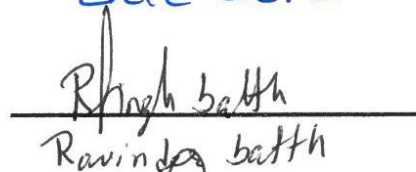 RSingh batth
Ravinder batth